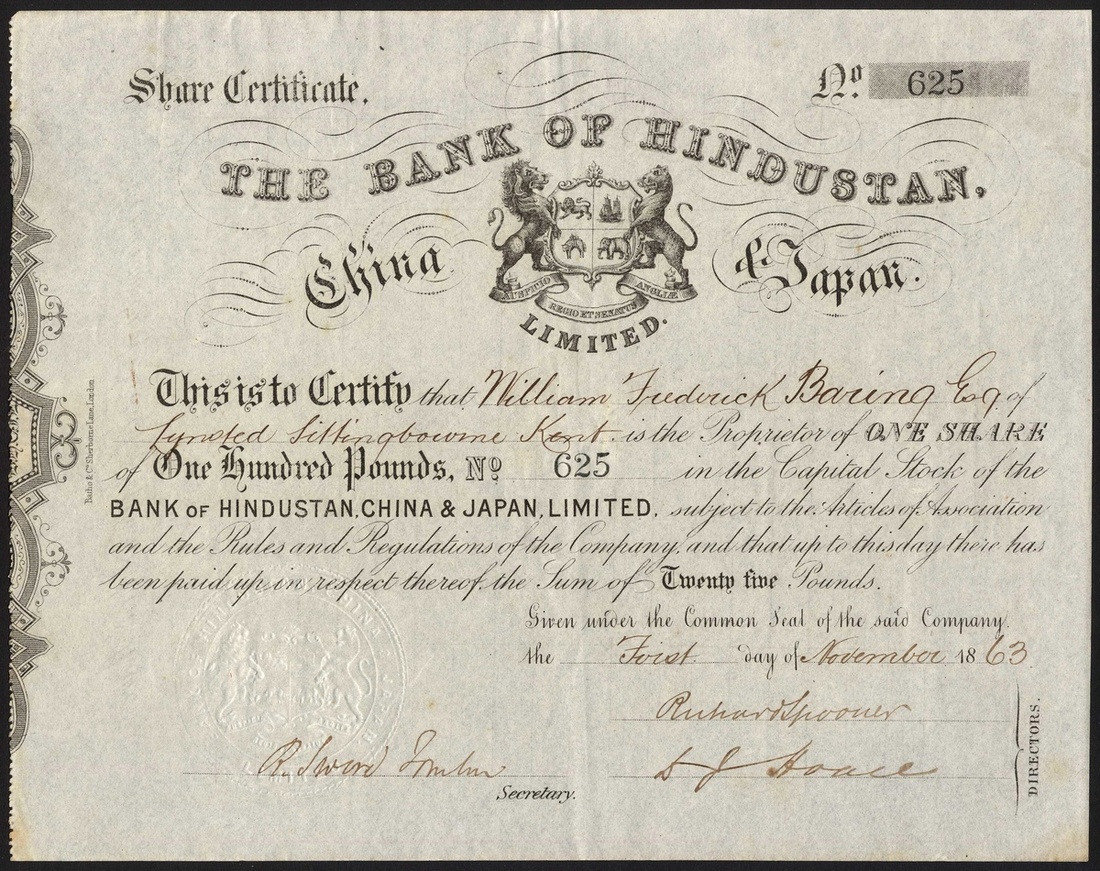 Share Certificate.
No. 625
THE BANK OF HINDUSTAN,
China & Japan.
AUSPICIO REGIO ET SENATUS ANGLIÆ
LIMITED.
This is to Certify that William Frederick Baring Esq. of
Lynsted Sittingbourne Kent is the Proprietor of ONE SHARE
of One Hundred Pounds, No 625 in the Capital Stock of the
BANK OF HINDUSTAN, CHINA & JAPAN, LIMITED, subject to the Articles of Association
and the Rules and Regulations of the Company, and that up to this day there has
been paid up, in respect thereof, the Sum of Twenty five Pounds.
Given under the Common Seal of the said Company.
the First day of November 1863.
Richard Spooner
DIRECTORS.
Secretary.
& Co Sherborne Lane, London